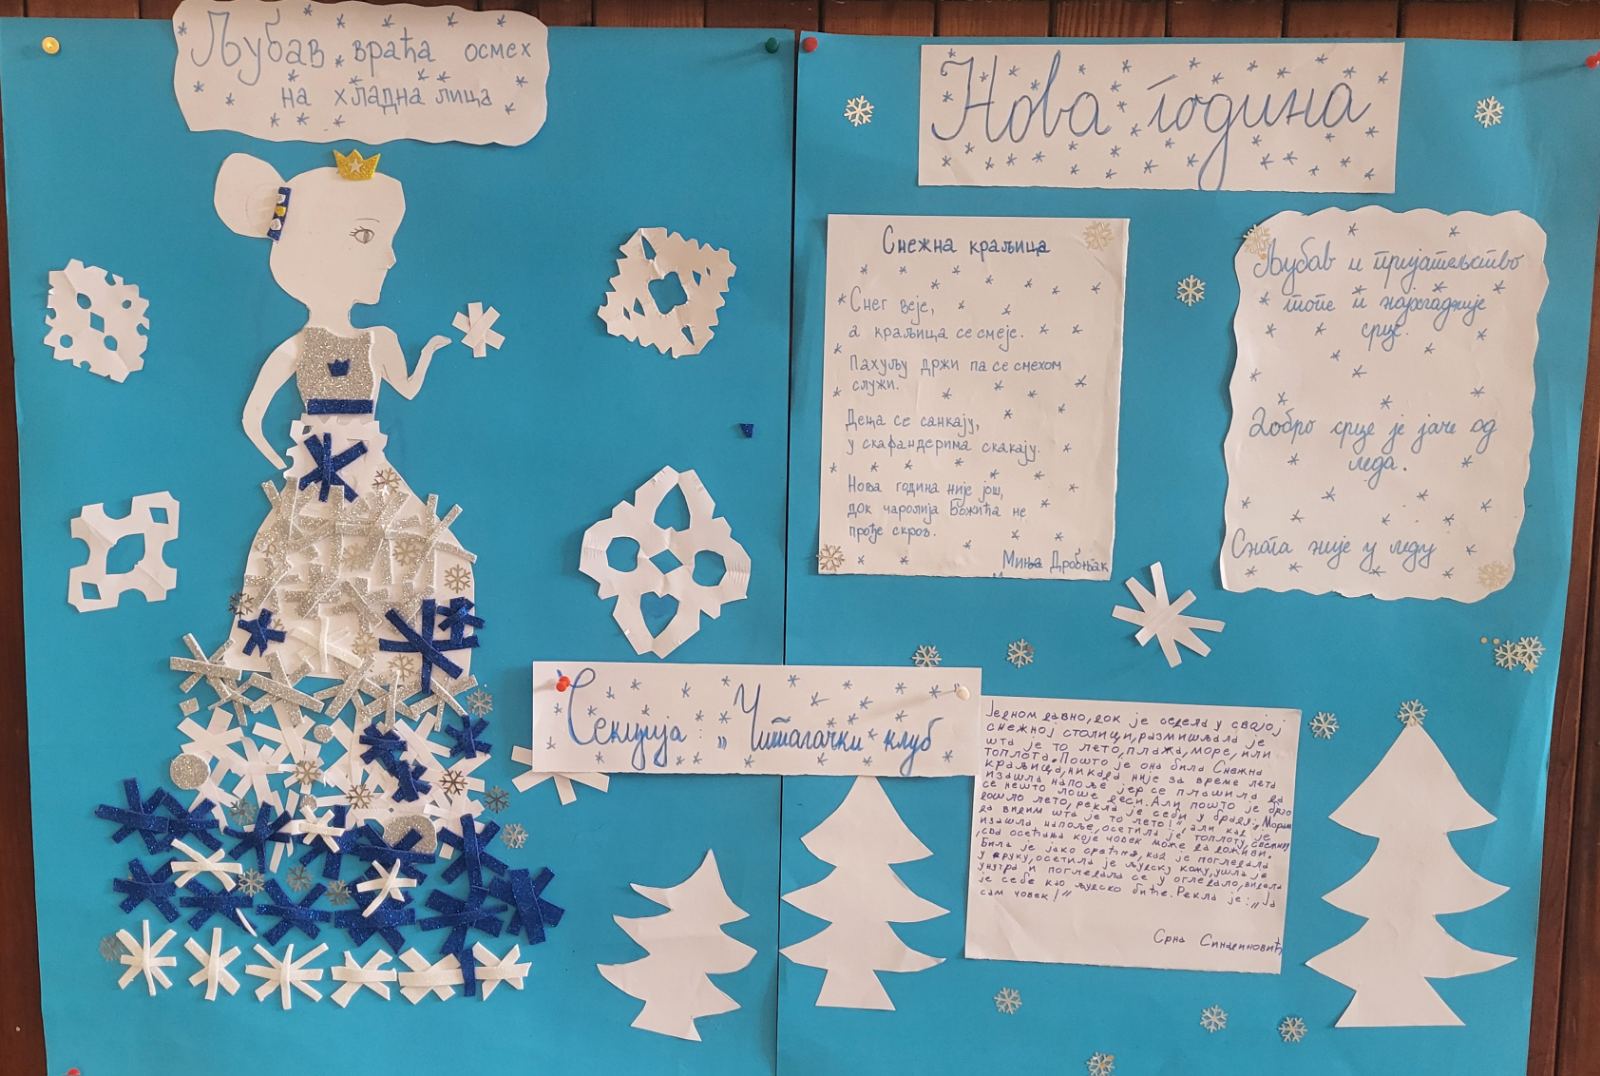 Љубав враћа осмех
на хладна лица
Нова година
Снежна краљица
Снег веје,
а краљица се смеје.
Пахуљу држи па се смехом
служи.
Деца се санкају,
у скафандерима скакају.
Нова година није још,
док чаролија Божића не
прође скроз.
Миња Дробњак
Љубав и пријатељство
топе и најхладније
срце.
Добро срце је јаче од
леда.
Снага није у леду
Секција: „Читалачки клуб
Једном давно, док је седела у својој
снежној столици, размишљала је
шта је то лето, плажа, море, или
топлота. Пошто је она била Снежна
краљица, никада није за време лета
изашла напоље јер се плашила да
се нешто лоше деси. Али пошто је брзо
дошло лето, рекла је себи у бради: „Морам
да видим шта је то лето!", али кад је
изашла напоље, осетила је топлоту,
, сва осећања које човек може да доживи.
Била је јако срећна, кад је погледала
у руку, осетила је људску кожу, ушла је
унутра и погледала се у огледало, видела
је себе као људско биће. Рекла је: „Ја
сам човек!"
Срна